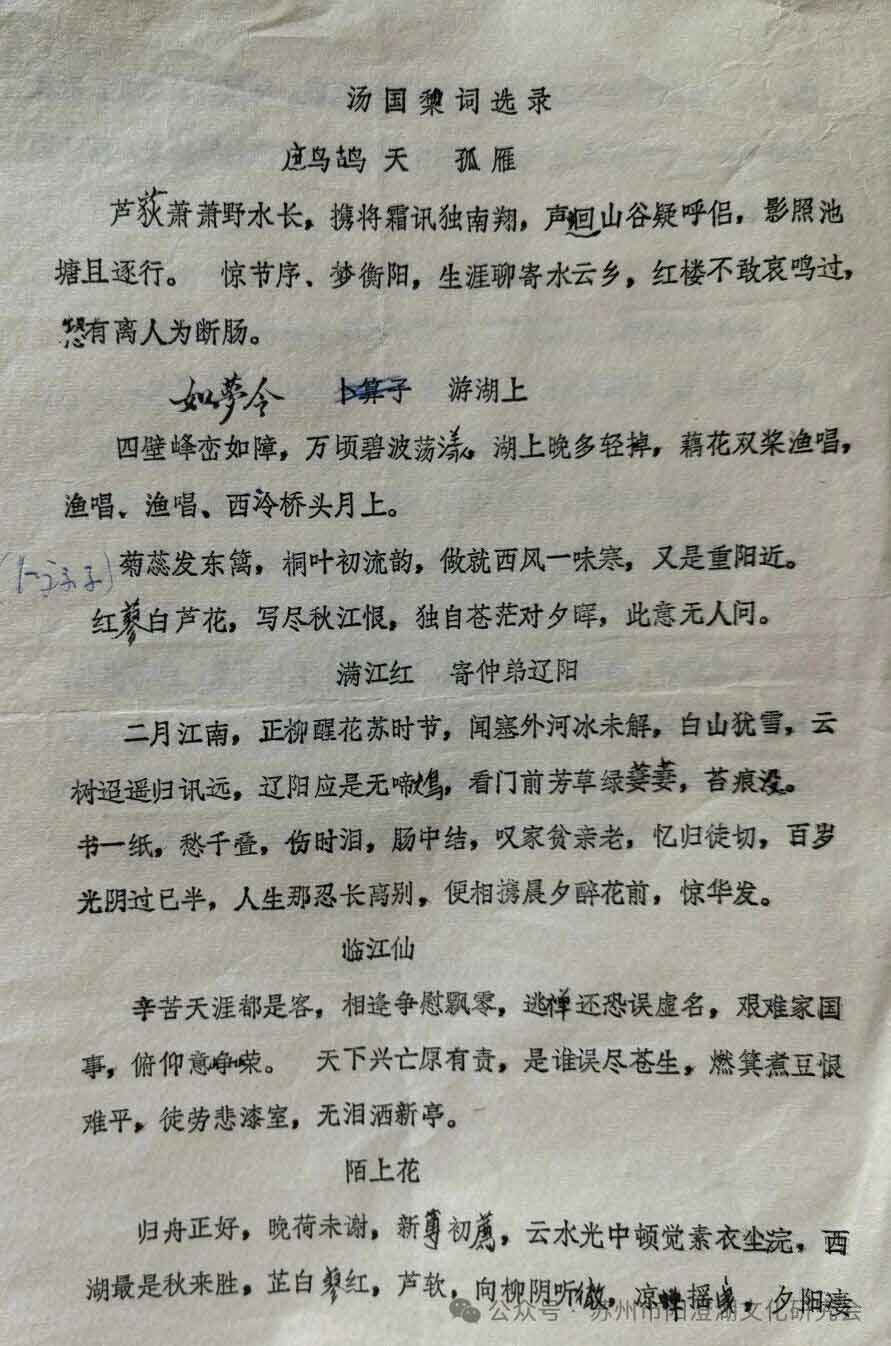 汤国黎词选录
鹧鸪天 孤雁
芦荻萧萧野水长，携将霜讯独南翔，声回山谷疑呼侣，影照池
塘且逐行。 惊节序、梦衡阳，生涯聊寄水云乡，红楼不敢哀鸣过，
恐有离人为断肠。
如夢令 卜算子 游湖上
四壁峰峦如障，万顷碧波荡漾，湖上晚多轻掉，藕花双桨渔唱，
渔唱、渔唱、西泠桥头月上。
(卜算子) 菊蕊发东篱，桐叶初流韵，做就西风一味寒，又是重阳近。
红蓼白芦花，写尽秋江恨，独自苍茫对夕晖，此意无人问。
满江红 寄仲弟辽阳
二月江南，正柳醒花苏时节，闻塞外河冰未解，白山犹雪，云
树迢遥归讯远，辽阳应是无啼鴂，看门前芳草绿萋萋，苔痕没。
书一纸，愁千叠，伤时泪，肠中结，叹家贫亲老，忆归徒切，百岁
光阴过已半，人生那忍长离别，便相携晨夕醉花前，惊华发。
临江仙
辛苦天涯都是客，相逢争慰飘零，逃禅还恐误虚名，艰难家国
事，俯仰意峥嵘。 天下兴亡原有责，是谁误尽苍生，燃箕煮豆恨
难平，徒劳悲漆室，无泪洒新亭。
陌上花
归舟正好，晚荷未谢，新蓴初薦，云水光中顿觉素衣尘浣，西
湖最是秋来胜，芷白蓼红，芦软，向柳阴听，凉蝉摇曳，夕阳凄
公众号·苏州市阳澄湖文化研究会